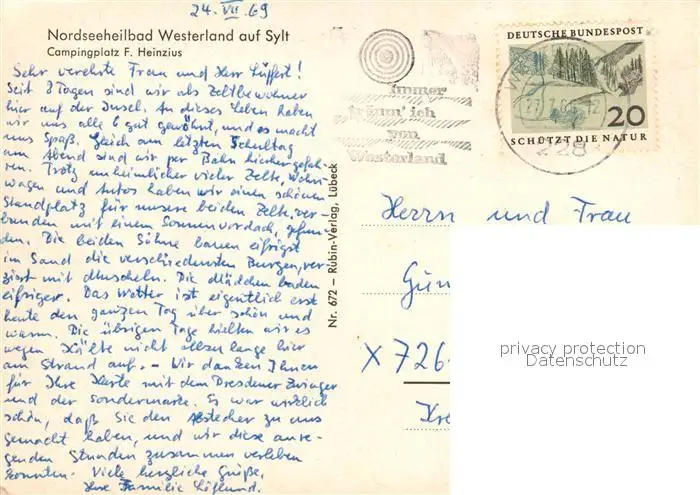 24. VII. 69
Nordseeheilbad Westerland auf Sylt
Campingplatz F. Heinzius
Sehr verehrte Frau und Herr Lüffert!
Seit 8 Tagen sind wir als Zeltbewohner
hier auf der Insel. An dieses Leben haben
wir uns alle 6 gut gewöhnt, und es macht
uns Spaß. Gleich am letzten Schultag
am Abend sind wir per Bahn hierher gefah-
ren. Trotz unheimlicher vieler Zelte, Wohn-
wagen und Autos haben wir einen schönen
Standplatz für unsere beiden Zelte, ver-
bunden mit einem Sonnenvordach, gefun-
den. Die beiden Söhne bauen eifrigst
im Sand die verschiedensten Burgen, ver-
ziert mit Muscheln. Die Mädchen baden
eifriger. Das Wetter ist eigentlich erst
heute den ganzen Tag über schön und
warm. Die übrigen Tage hielten wir es
wegen Kälte nicht allzu lange hier
am Strand auf. – Wir danken Ihnen
für Ihre Karte mit dem Dresdener Zwinger
und der Sondermarke. Es war wirklich
schön, daß Sie den Abstecher zu uns
gemacht haben, und wir diese anre-
genden Stunden zusammen verleben
konnten. Viele herzliche Grüße,
Ihre Familie
Nr. 672 – Rubin-Verlag, Lübeck
immer
träum' ich
von
Westerland
DEUTSCHE BUNDESPOST
20
SCHÜTZT DIE NATUR
228
Herrn und Frau
Gün
X 726
Kre
privacy protection
Datenschutz